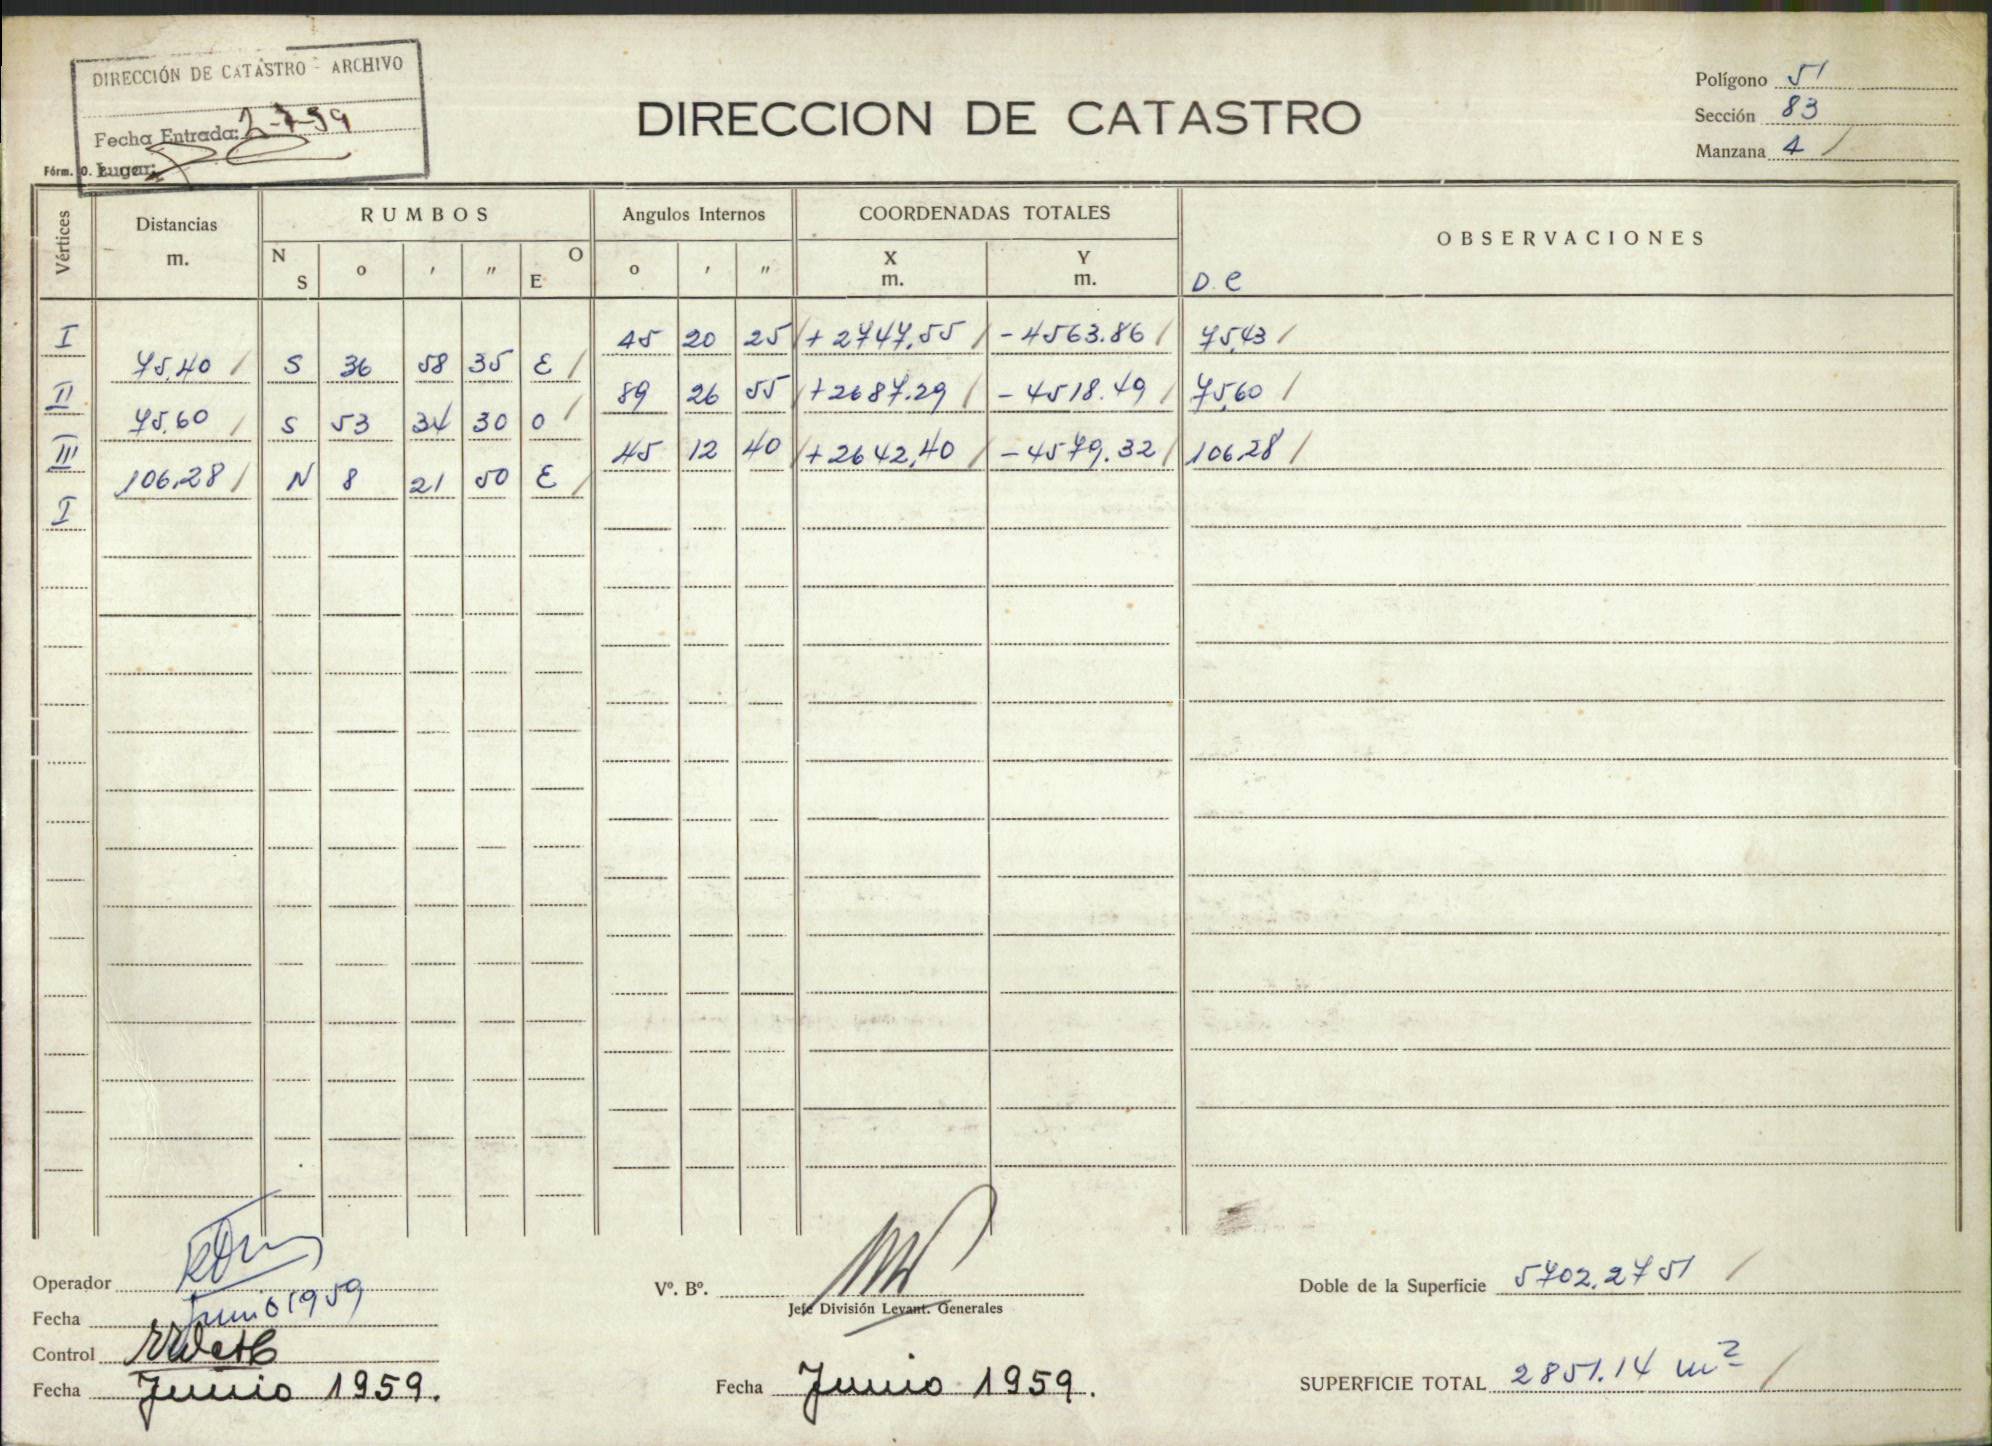 DIRECCIÓN DE CATASTRO - ARCHIVO
Fecha Entrada: 2-7-59
Lugar:
Fórm. O.
DIRECCION DE CATASTRO
Polígono 51
Sección 83
Manzana 4 /
Vértices Distancias m. RUMBOS Angulos Internos COORDENADAS TOTALES OBSERVACIONES
N S o ' " O E o ' " X m. Y m. D.C
I 45 20 25 / + 2747,55 / - 4563.86 / 75,43 /
75,40 / S 36 58 35 E /
II 89 26 55 / + 2687.29 / - 4518.49 / 75,60 /
75,60 / S 53 34 30 O /
III 45 12 40 / + 2642,40 / - 4579.32 / 106,28 /
106,28 / N 8 21 50 E /
I
Operador
Fecha Junio 1959
Control
Fecha Junio 1959.
Vº. Bº.
Jefe División Levant. Generales
Fecha Junio 1959.
Doble de la Superficie 5702.2751 /
SUPERFICIE TOTAL 2851.14 m² /